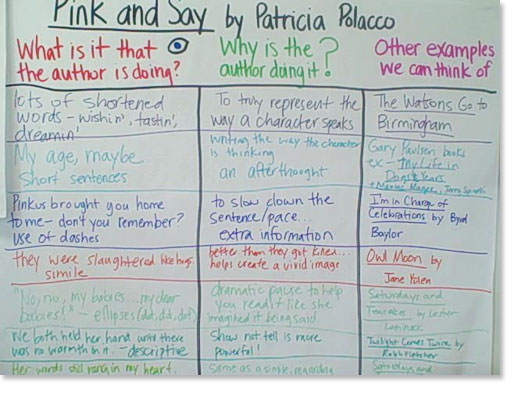 Pink and Say by Patricia Polacco
What is it that
the author is doing?
Why is the
author doing it?
Other examples
we can think of
lots of shortened
words - wishin', tastin',
dreamin'
To truly represent the
way a character speaks
The Watsons Go to
Birmingham
My age, maybe.
Short sentences
Writing the way the character
is thinking
an afterthought
Gary Paulsen books
ex - My Life in
Dog Years
Pinkus brought you home
to me - don't you remember?
Use of dashes
to slow down the
sentence/pace...
extra information
I'm in Charge of
Celebrations by Byrd
Baylor
they were slaughtered like hogs.
simile
better than they got killed...
helps create a vivid image
Owl Moon by
Jane Yolen
"No, no, my babies...my dear
babies!" - ellipses (dot, dot, dot)
dramatic pause to help
you read it like she
imagined it being said
Saturdays and
Teacakes by Lester
Laminack
We both held her hand until there
was no warmth in it. - descriptive
Show not tell is more
powerful!
Twilight Comes Twice by
Ralph Fletcher
Her words still rang in my heart.
Same as a simile, regarding
Saturdays and